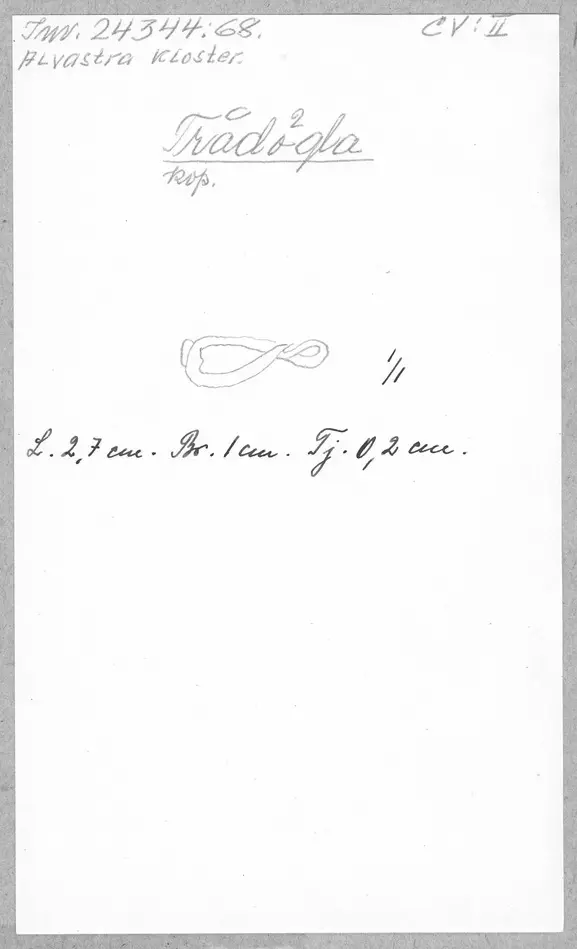 Inv. 24344:68.
CV: II
Alvastra Kloster.
Trådögla
kop.
1/1
L. 2,7 cm. Br. 1 cm. Tj. 0,2 cm.